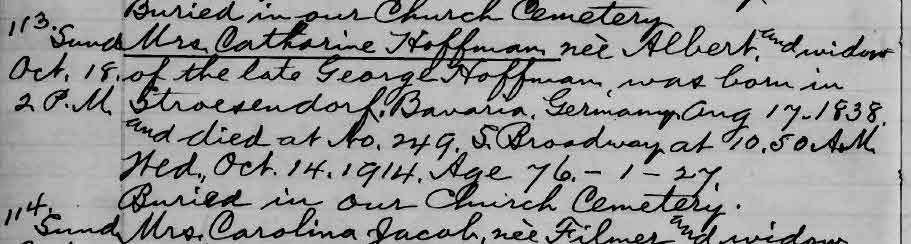 Buried in our Church Cemetery
113. Sund. Mrs. Catharine Hoffman, neè Albert, and widow
Oct. 18. of the late George Hoffman, was born in
2 P.M. Stroesendorf, Bavaria, Germany, Aug 17-1838.
and died at No. 249. S. Broadway at 10.50 A.M.
Wed., Oct. 14. 1914. Age 76.-1-27.
Buried in our Church Cemetery.
114. Sund. Mrs. Carolina Jacob, neè Filmer and widow